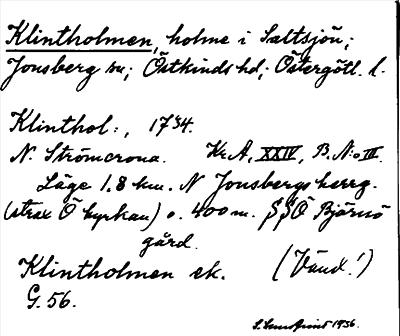 Klintholmen, holme i Sættsjön;
Jonsberg sn; Östkinds hd; Östergötl. l.
Klinthol:, 1734.
N. Strömcrona. Kr. A, XXIV, B. N:o III.
Läge 1.8 km. N Jonsbergs herrg.
(strax Ö kyrkan) o. 400 m. SSÖ Björnö
gård.
Klintholmen ek. (Vänd!)
G. 56.
1936.